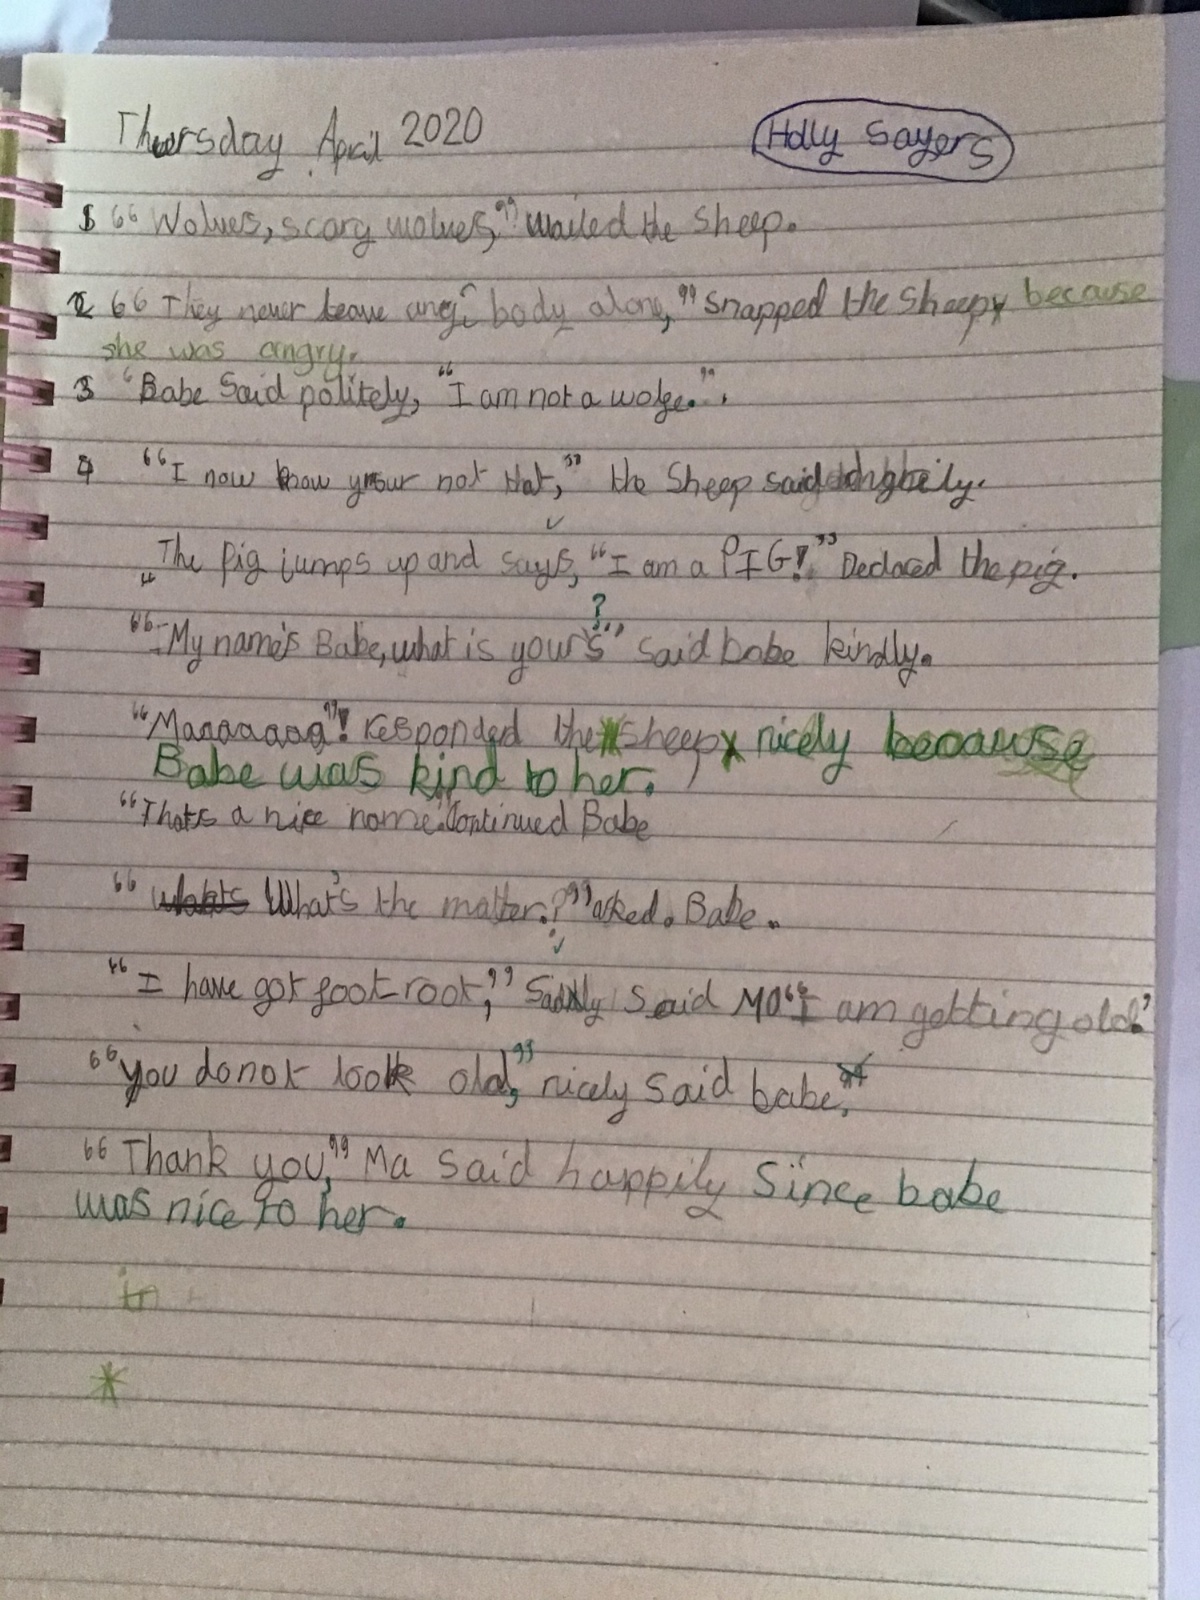 Thursday April 2020
Holly Sayers
1 "Wolves, scary wolves," wailed the sheep.
2 "They never leave any body alone," snapped the sheep because
she was angry.
3 Babe said politely, "I am not a wolfe."
4 "I now know your not that," the Sheep said
The pig jumps up and says, "I am a PIG!" Declaced the pig.
"My name's Babe, what is yours?" said babe kindly.
"Maaaaaaa"! responded the sheep nicely because
Babe was kind to her.
"Thats a nice name." Continued Babe
"whats What's the matter.?" asked. Babe.
"I have got foot root," Sadly said MA "I am getting old."
"you do not look old," nicely said babe.
"Thank you," Ma said happily Since babe
was nice to her.
in